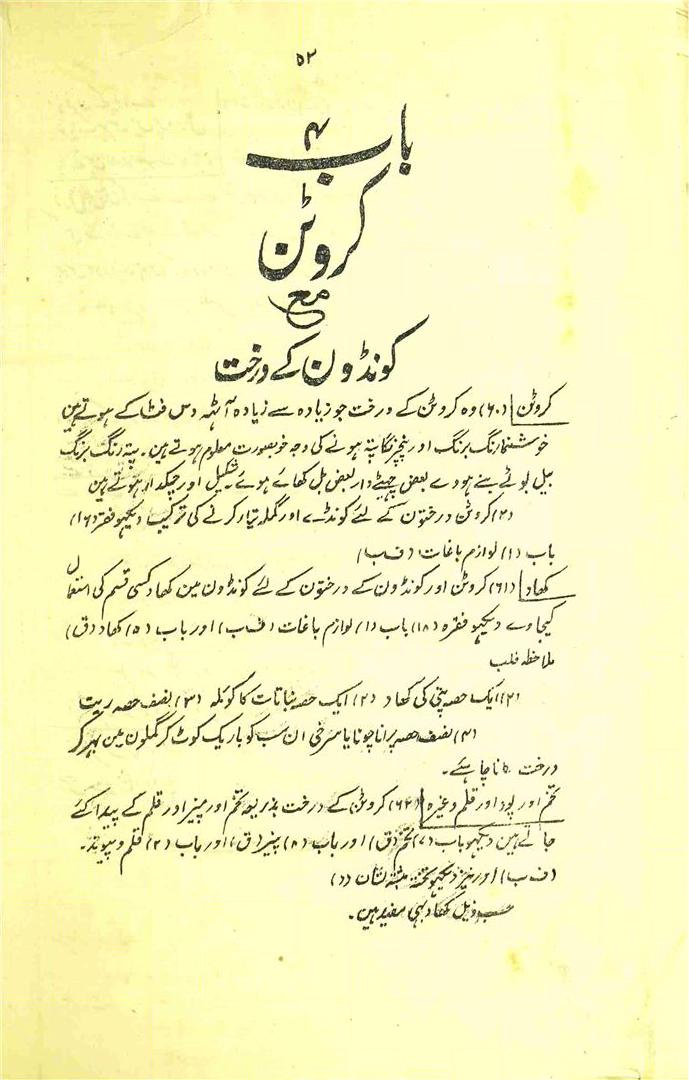 ۵۲
باب ۴
کروٹن
مع
کونڈون کے درخت
کروٹن (۶۰) وہ کروٹن کے درخت جو زیادہ سے زیادہ آٹہہ دس فٹ کے ہوتے ہین
خوشنما رنگ برنگ اور پتہ ہونے کی وجہ خوبصورت معلوم ہوتے ہین۔ پتہ رنگ برنگ
بیل بوٹے بنے ہودے بعض چہینٹے دار بعض بل کھاے ہوے شکیل اور چمکدار ہوتے ہین
(۲) کروٹن درختون کے لئے کونڈے اور گملہ تیار کرنے کی ترکیب دیکھو فقرہ (۱۶)
باب (۱) لوازم باغات (ف ب)
کھاد (۶۱) کروٹن اور کونڈون کے درختون کے لئے کونڈون مین کھاد کسی قسم کی استعمال
کیجاوے دیکھو فقرہ (۱۸) باب (۱) لوازم باغات (ف ب) اور باب (۵) کھاد (ق)
ملاحظہ طلب
(۲) ایک حصہ پتی کی کھاد (۲) ایک حصہ نباتات کا کوئلہ (۳) نصف حصہ ریت
(۴) نصف حصہ پرانا چونا یا سرخی ان سب کو باریک کوٹ کر گملون مین بہر کر
درخت لگانا چاہئے۔
تخم اور پود اور قلم وغیرہ (۶۲) کروٹن کے درخت بذریعہ تخم اور پنیر اور قلم کے پیدا کئے
جاتے ہین دیکھو باب (۷) تخم (ق) اور باب (۸) پنیر (ق) اور باب (۲) قلم و پیوند۔
(ف ب) اور نیز دیکھو تختہ نشان (د)
حسب ذیل کھاد بہی مفید ہین۔